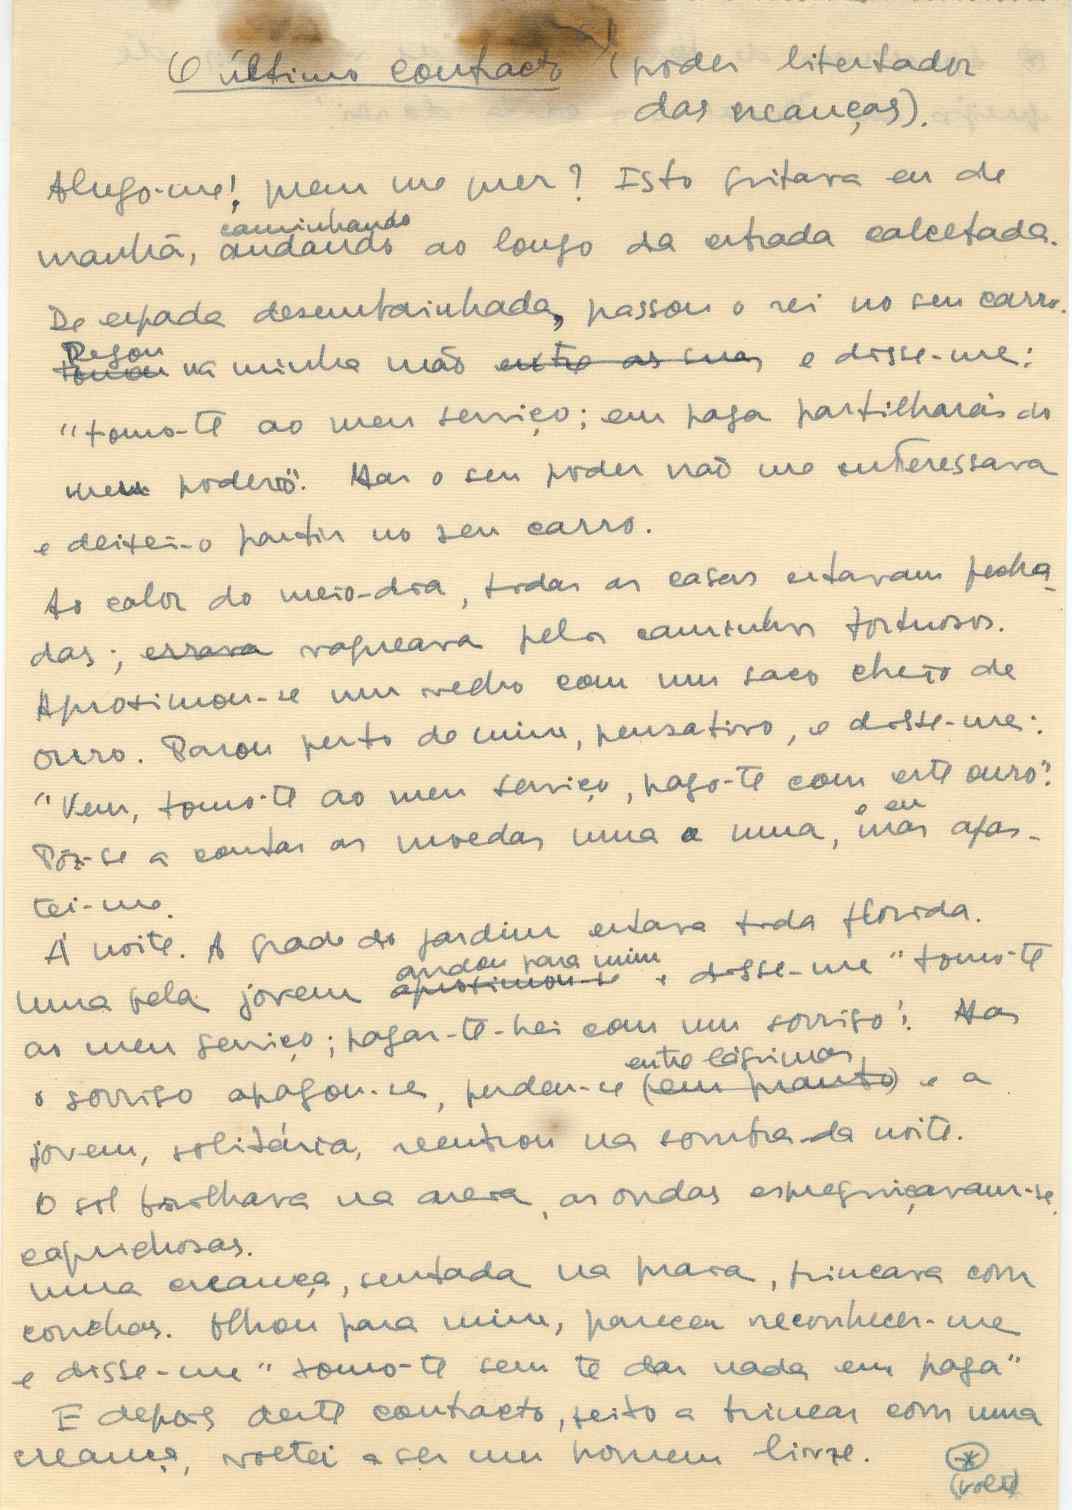 O último contracto (poder libertador
das creanças).
Alugo-me! quem me quer? Isto gritava eu de
caminhando
manhã, andando ao longo da estrada calcetada.
De espada desembainhada, passou o rei no seu carro.
Pegou
tomou na minha mão entre as suas e disse-me:
"tomo-te ao meu serviço; em paga partilharás do
meu poderio". Mas o seu poder não me interessava
e deixei-o partir no seu carro.
Ao calor do meio-dia, todas as casas estavam fecha-
das; errava vagueava pelos caminhos tortuosos.
Aproximou-se um velho com um saco cheio de
ouro. Parou perto de mim, pensativo, e disse-me:
"Vem, tomo-te ao meu serviço, pago-te com este ouro".
e eu
Pôz-se a contar as moedas uma a uma, mas afas-
tei-me.
Á noite. A grade do jardim estava toda florida.
andou para mim
Uma bela jovem aproximou-se e disse-me "tomo-te
ao meu serviço; pagar-te-hei com um sorriso". Mas
entre lágrimas
o sorriso apagou-se, perdeu-se (em pranto) e a
jovem, solitária, reentrou na sombra da noite.
O sol brilhava na areia, as ondas espreguiçavam-se,
caprichosas.
Uma creança, sentada na praia, brincava com
conchas. Olhou para mim, pareceu reconhecer-me
e disse-me "tomo-te sem te dar nada em paga"
E depois deste contracto, feito a brincar com uma
creança, voltei a ser um homem livre.
*
(volte)